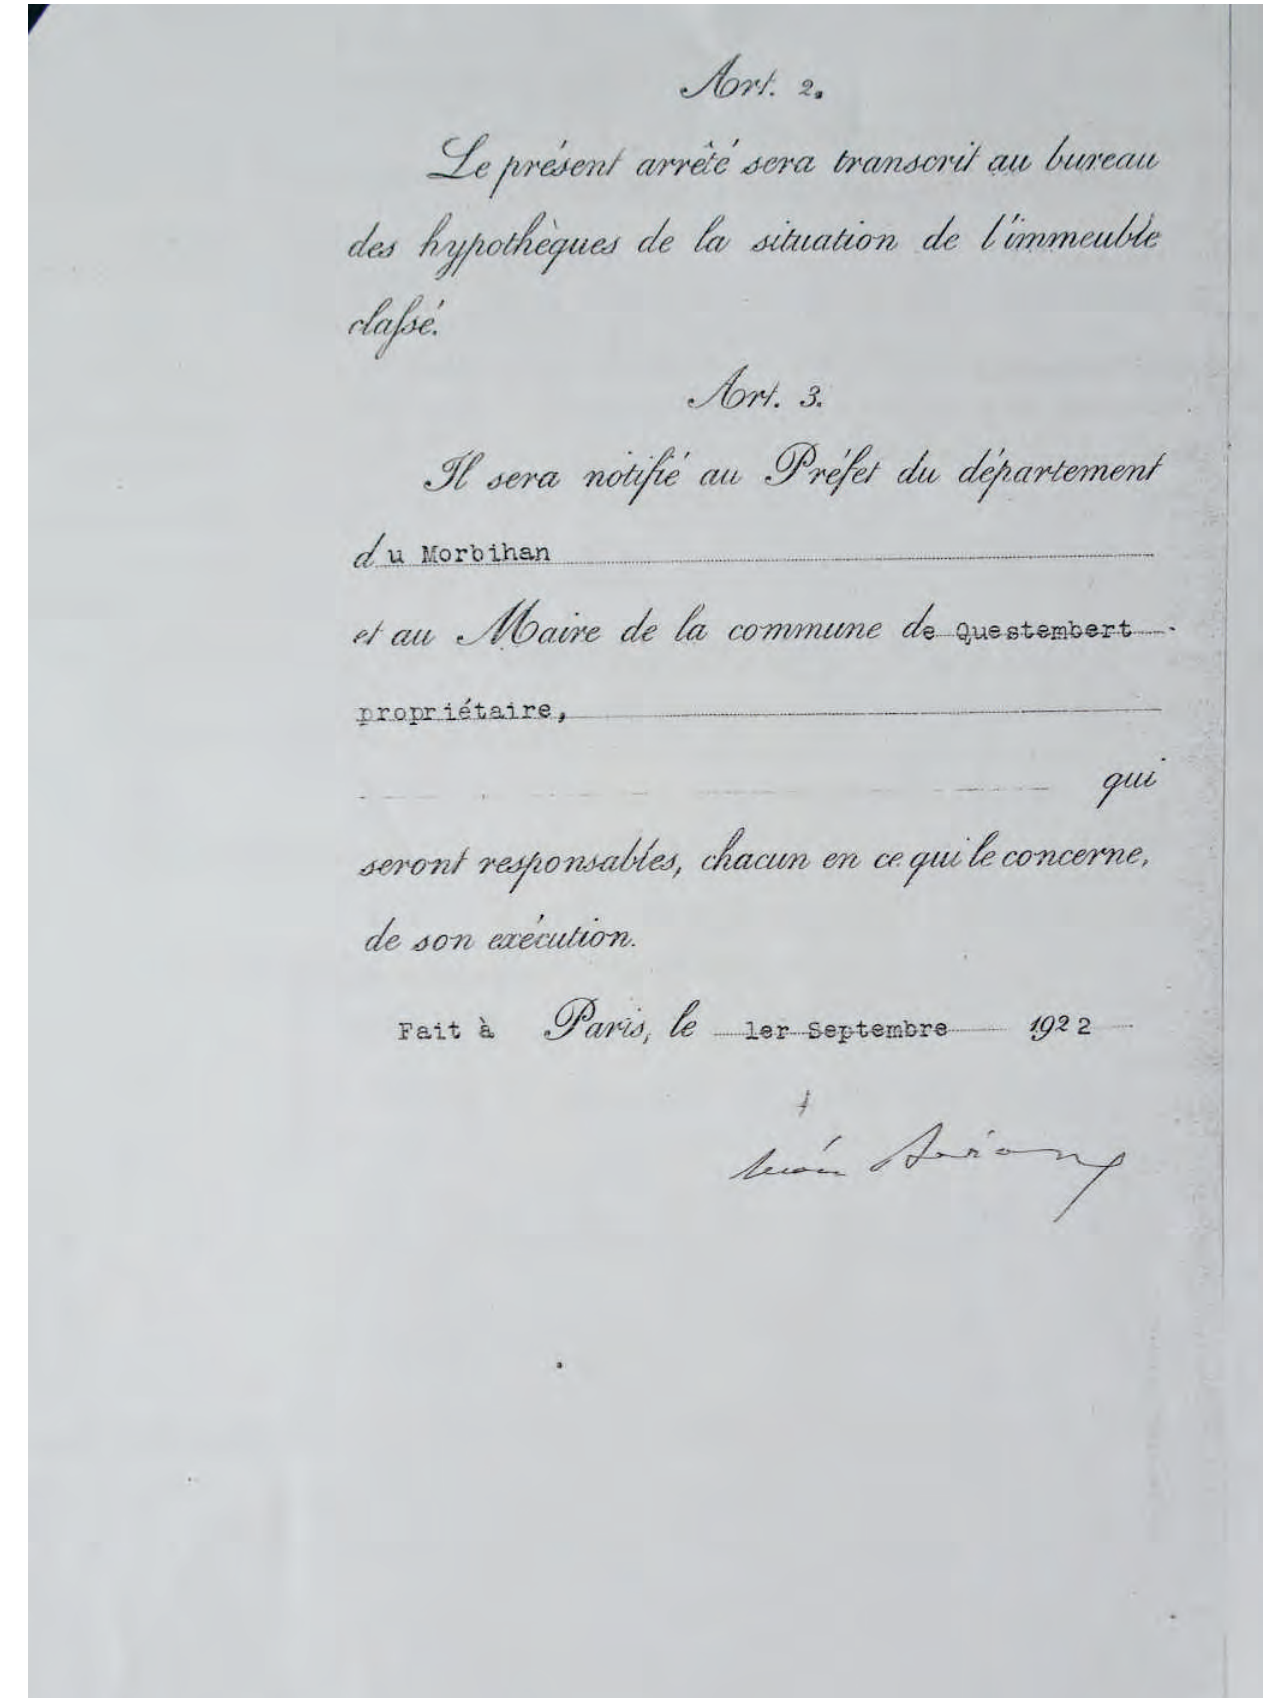 Art. 2.
Le présent arrêté sera transcrit au bureau
des hypothèques de la situation de l'immeuble
classé.
Art. 3.
Il sera notifié au Préfet du département
du Morbihan
et au Maire de la commune de Questembert
propriétaire,
qui
seront responsables, chacun en ce qui le concerne,
de son exécution.
Fait à Paris, le 1er Septembre 1922
Léon Bérard